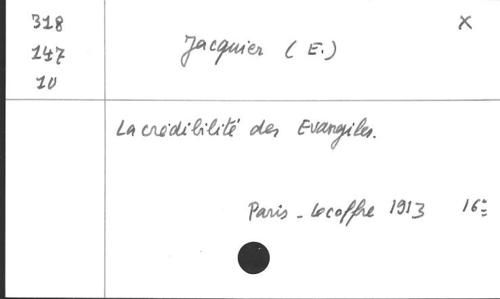 318
147
10
X
Jacquier (E.)
La crédibilité des Evangiles.
Paris - Lecoffre 1913 16°